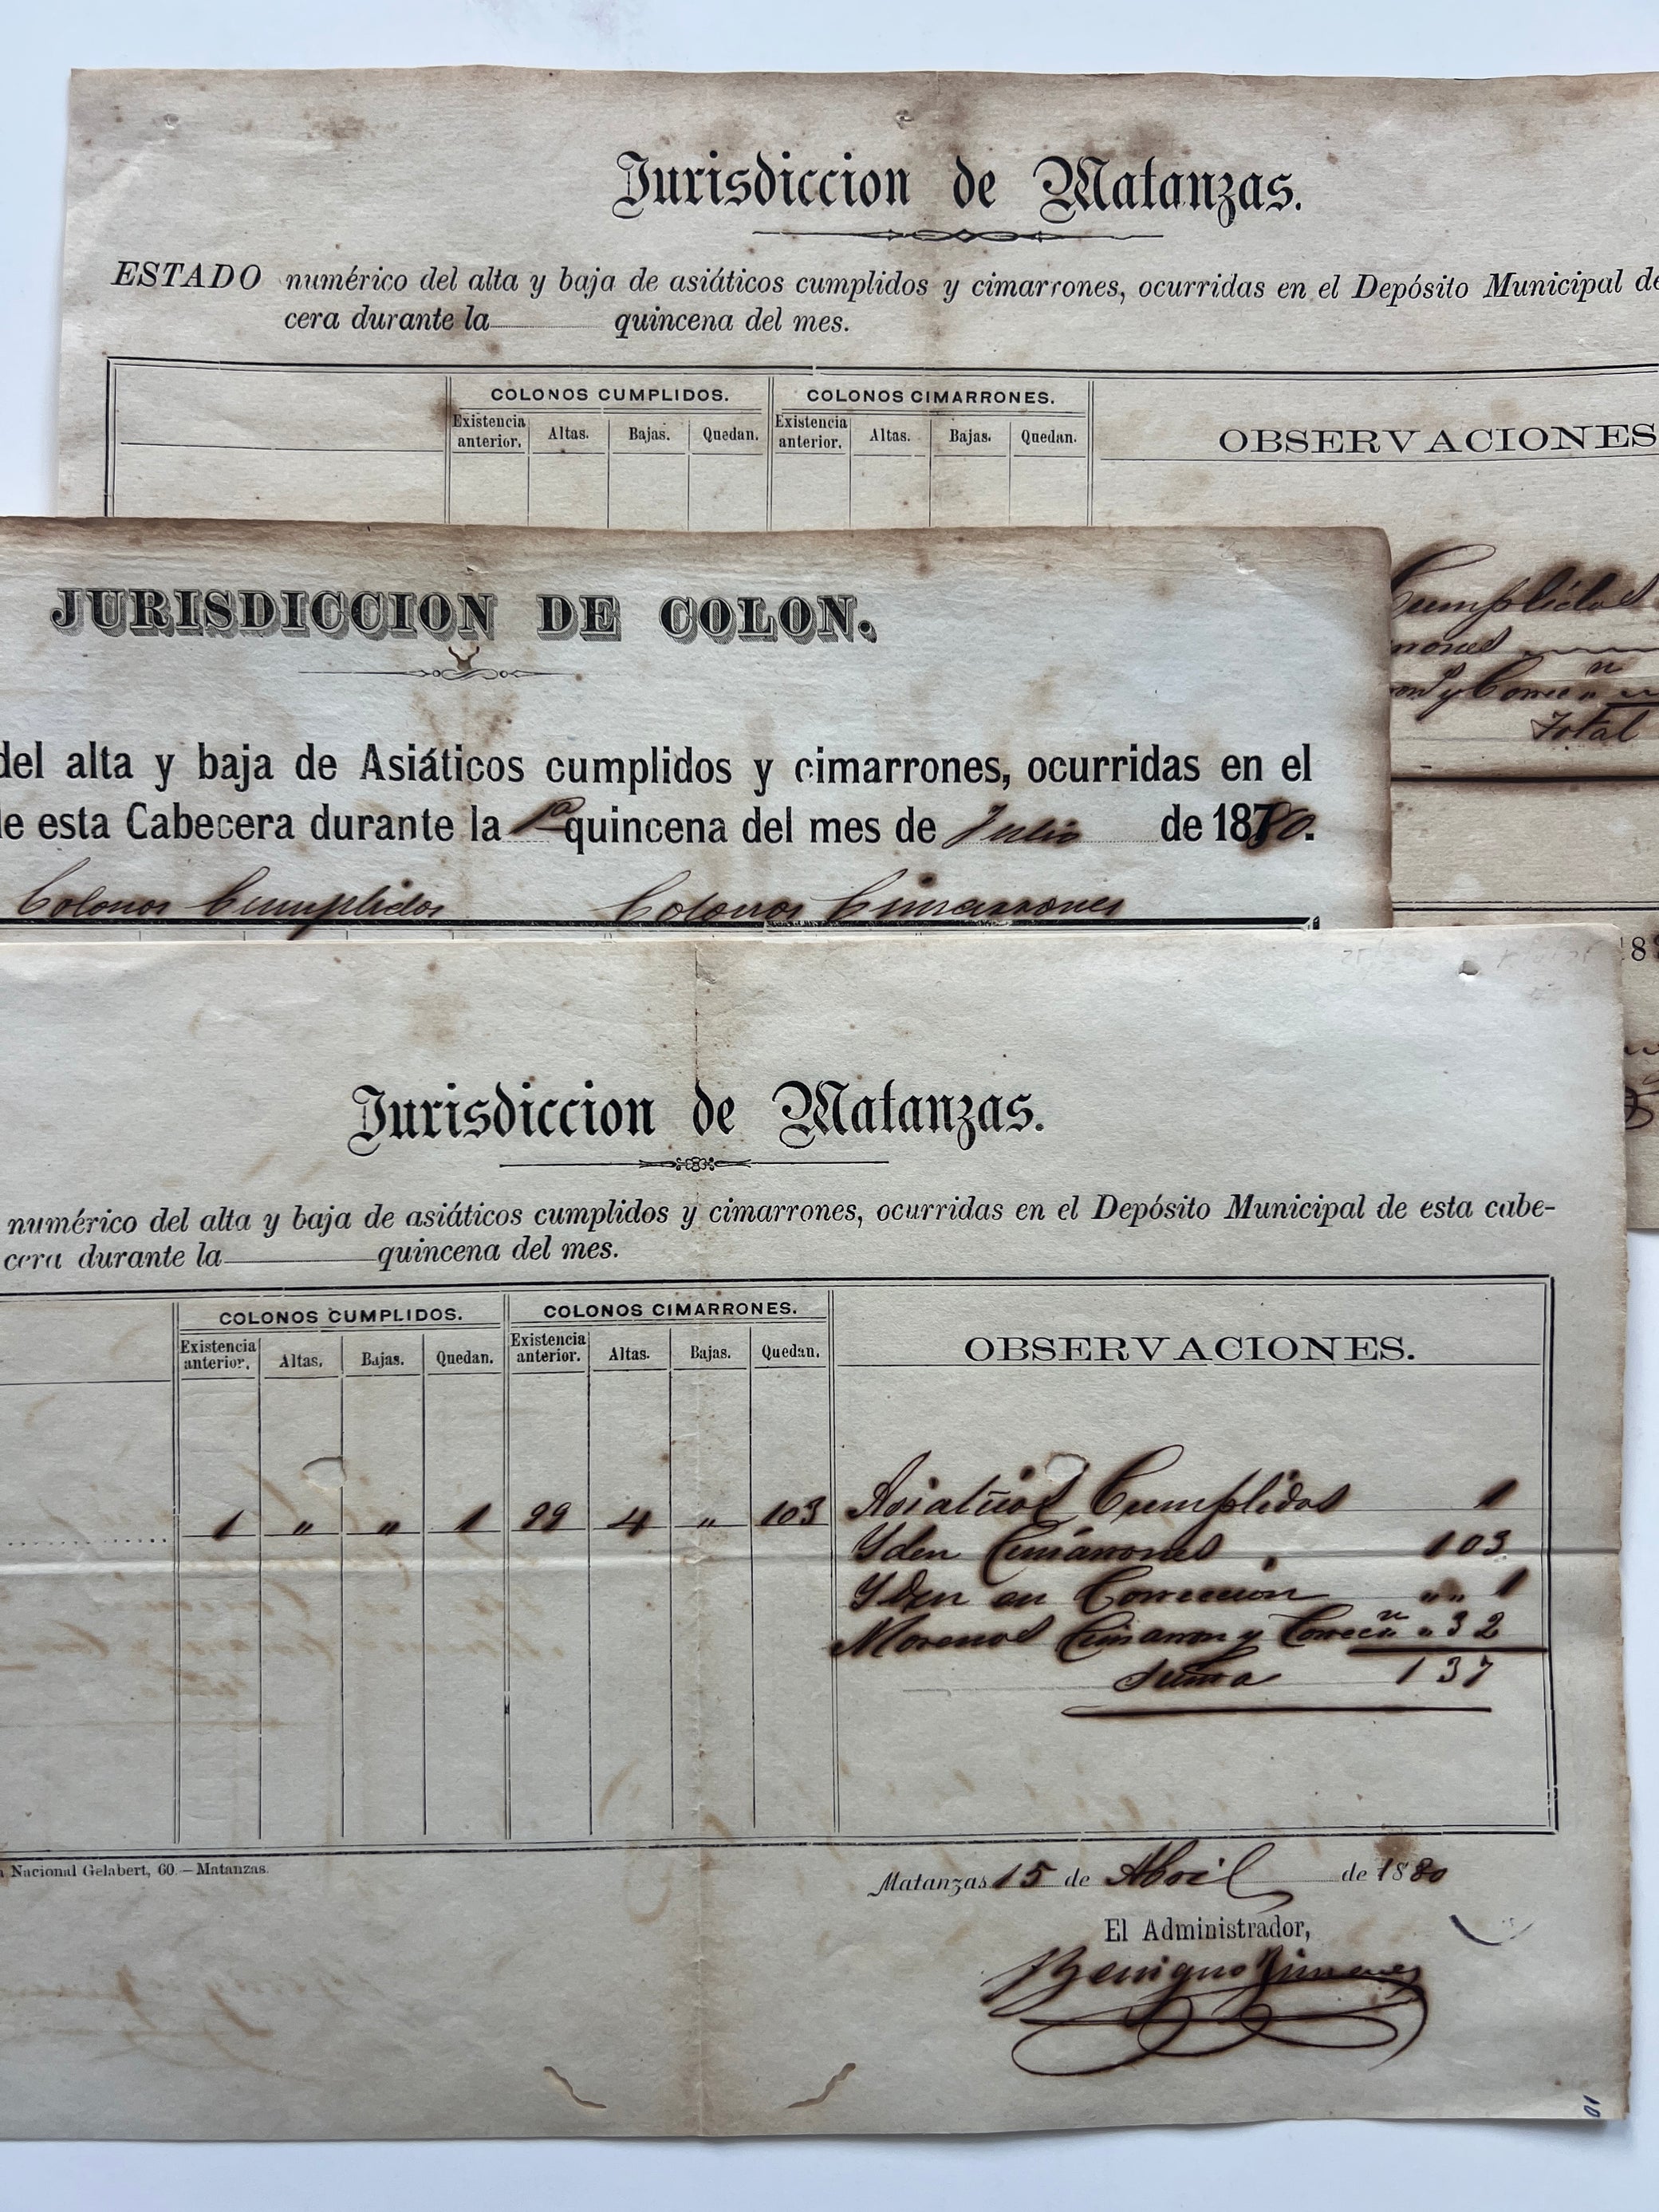 Jurisdiccion de Matanzas.
ESTADO numérico del alta y baja de asiáticos cumplidos y cimarrones, ocurridas en el Depósito Municipal de
cera durante la quincena del mes.
COLONOS CUMPLIDOS. COLONOS CIMARRONES.
Existencia anterior. Altas. Bajas. Quedan. Existencia anterior. Altas. Bajas. Quedan. OBSERVACIONES
Cumplidos
rrones
y Correcn
Total
JURISDICCION DE COLON.
del alta y baja de Asiáticos cumplidos y cimarrones, ocurridas en el
de esta Cabecera durante la 1ª quincena del mes de Julio de 1880.
Colonos Cumplidos Colonos Cimarrones
18
Jurisdiccion de Matanzas.
numérico del alta y baja de asiáticos cumplidos y cimarrones, ocurridas en el Depósito Municipal de esta cabe-
cera durante la quincena del mes.
COLONOS CUMPLIDOS. COLONOS CIMARRONES.
Existencia anterior. Altas. Bajas. Quedan. Existencia anterior. Altas. Bajas. Quedan. OBSERVACIONES.
1 " " 1 99 4 " 103
Asiaticos Cumplidos 1
Yden Cimarrones 103
Yden en Correccion " " 1
Morenos Cimarron y Correcn " 32
Suma 137
Nacional Gelabert, 60.—Matanzas.
Matanzas 15 de Abril de 1880
El Administrador,
Benigno Jimenes
10